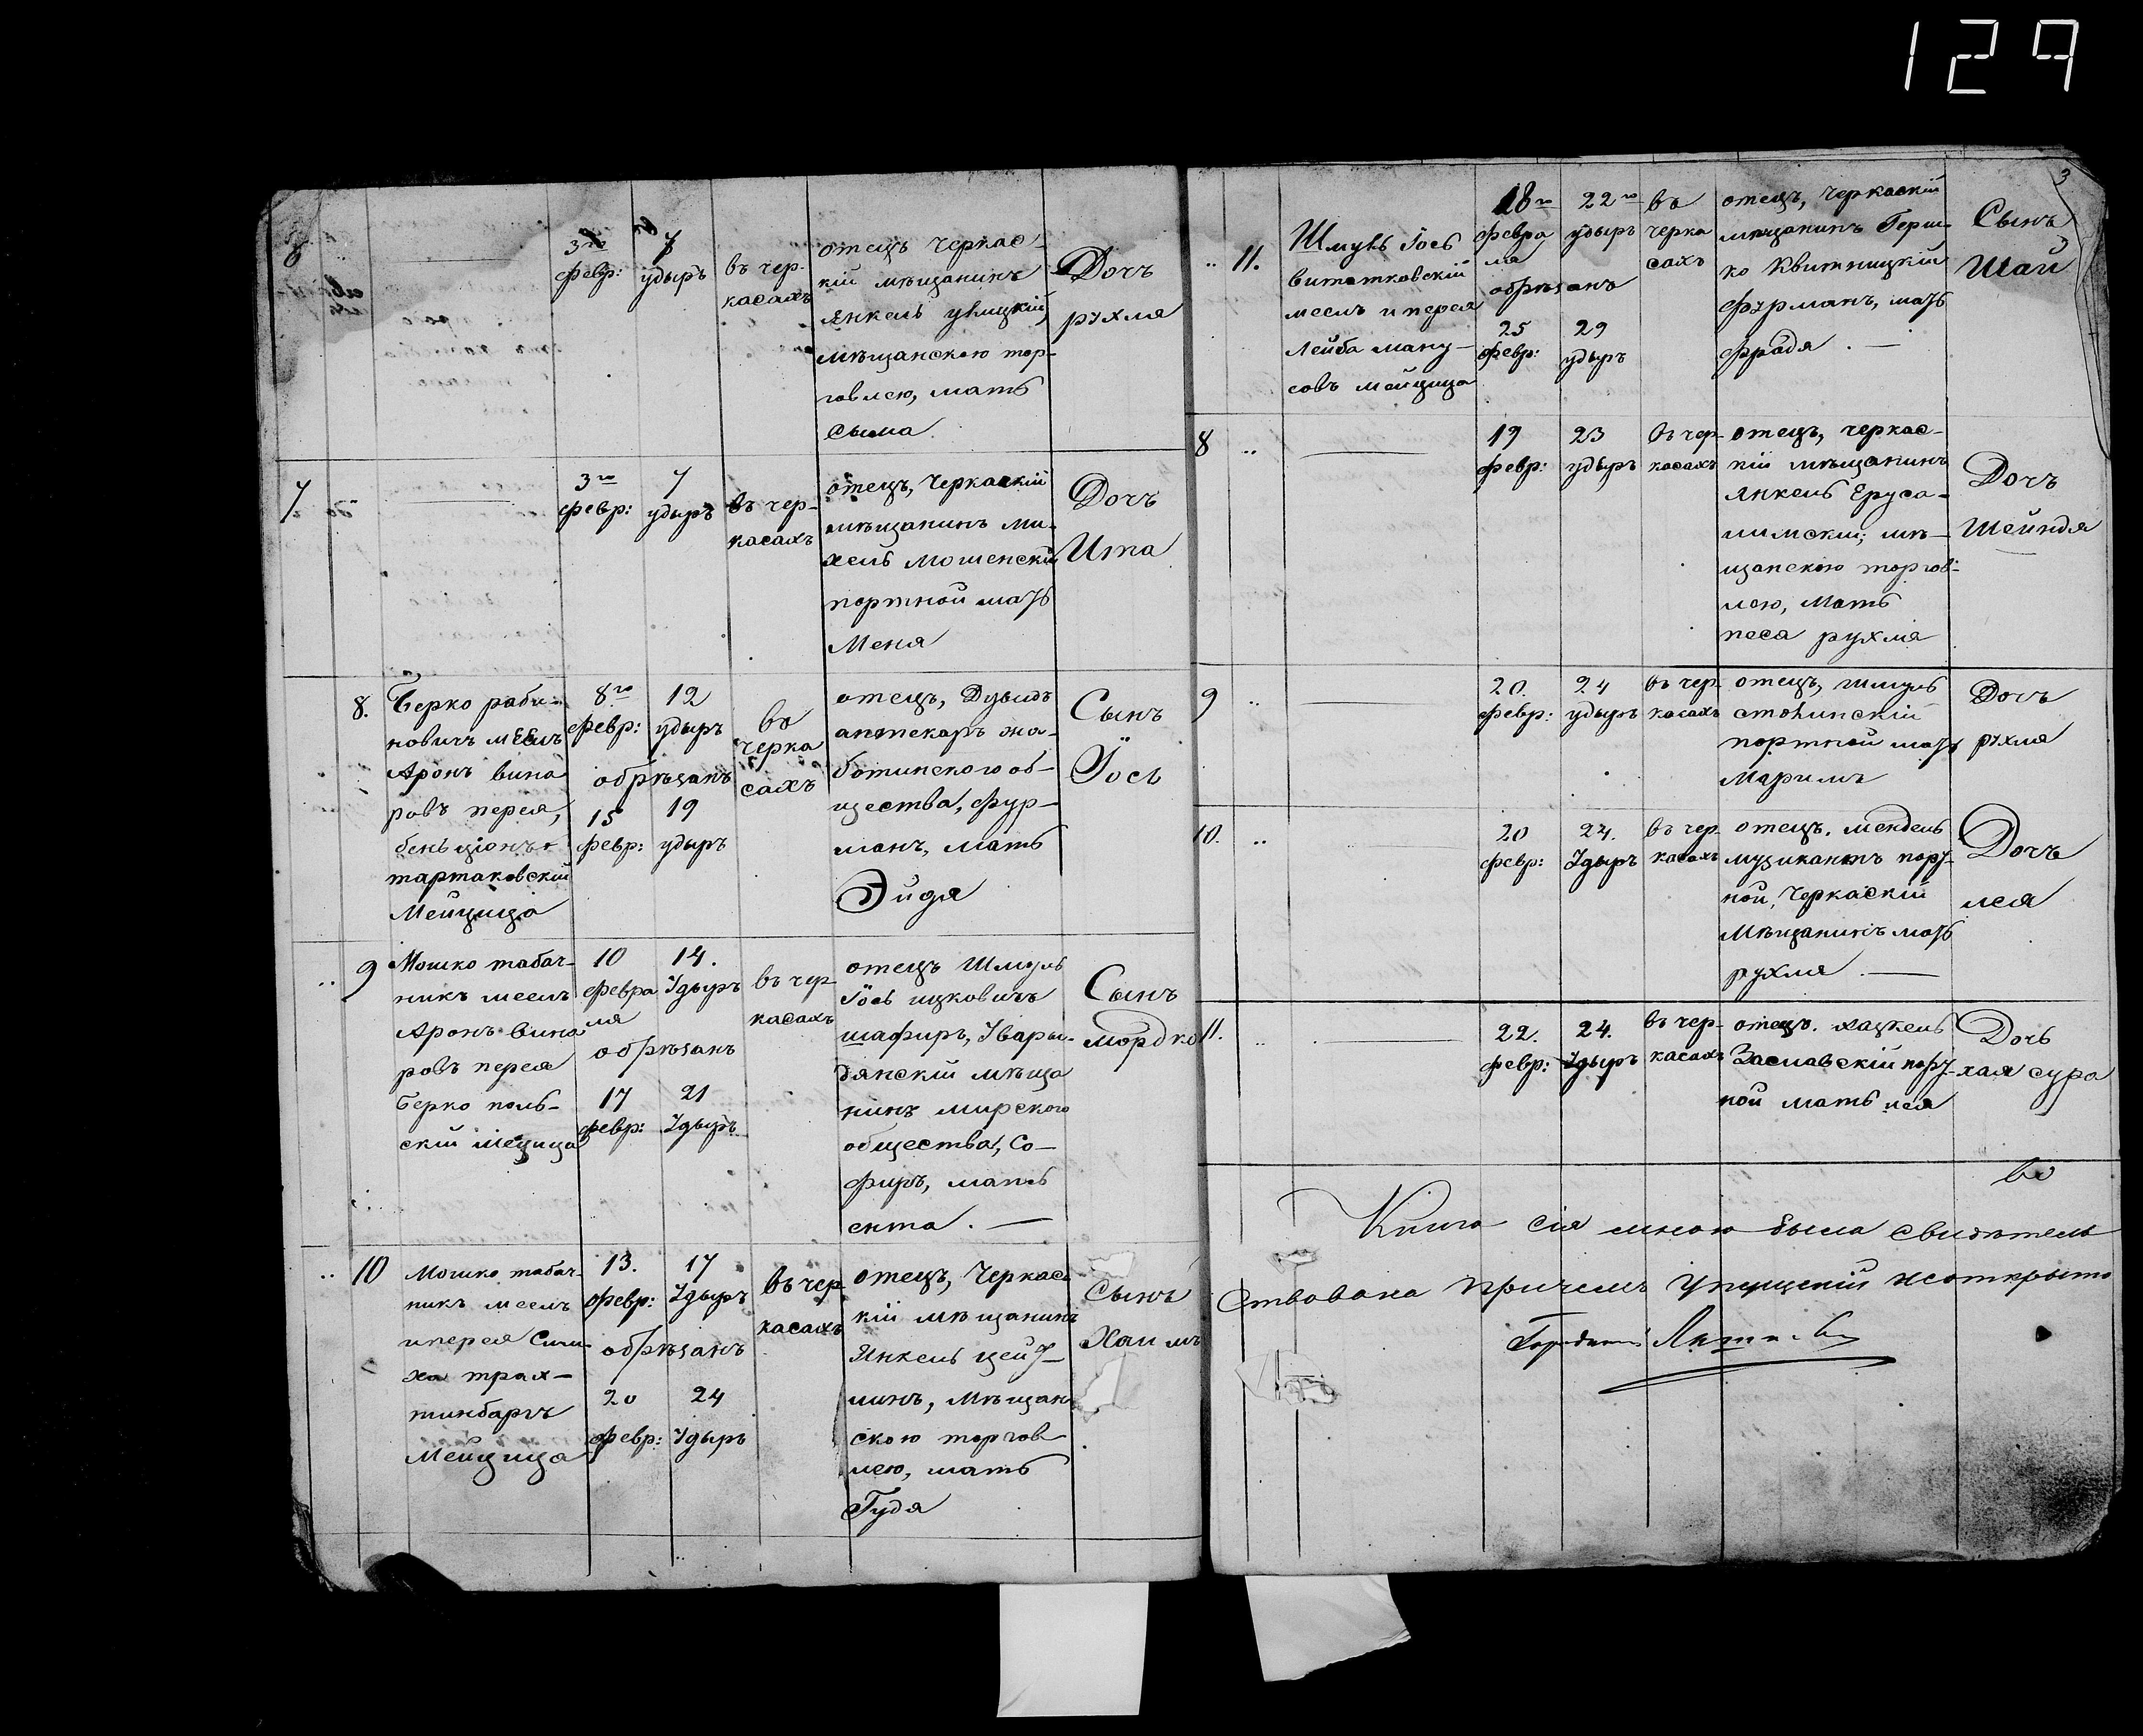 129
3
6
3го
февр:
7
удыръ
въ чер-
касахъ
отецъ Черкас-
кій мѣщанинъ
Янкель улицкій,
мѣщанскою тор-
говлею, мать
Сыма
Дочъ
рухля
7
3го
февр:
7
удыръ
въ чер-
касахъ
отецъ, Черкаскій
мѣщанинъ Ми-
хель мошенскій
портной мать
Меня
Дочъ
Ита
8.
Берко раби-
новичъ меелъ
Аронъ вина
ровъ перея,
беньціонъ
тартаковскій
Мейцица
8го
февр:
12
удыръ
обрѣзанъ
15
февр:
19
удыръ
во
черка
сахъ
отецъ, Дувидъ
аптекаръ жа-
ботинского об-
щества, фур-
манъ, мать
Эйдя
Сынъ
Іось
9
Мошко табач-
никъ меелъ
Аронъ вина
ровъ перея
Берко поль-
скій мецица
10
февра
ля
14.
Удыръ
обрѣзанъ
17
февр:
21
Удыръ
въ чер
касахъ
отецъ Шмуль
Іось ицковичъ
шафиръ,
мѣща
нинъ мирского
общества, Со-
фиръ, мать
ента. —
Сынъ
мордко
10
Мошко табач-
никъ меелъ
иперея Сим
ха трах-
тинбаргъ
Мейцица
13.
февр:
17
Удыръ
обрѣзанъ
20
февр:
24
Удыръ
въ чер
касахъ
отецъ, Черкас
кій мѣщанинъ
Янкель цейт-
линъ, мѣщан
скою торгов
лею, мать
Гудя
Сынъ
Хаимъ
11.
Шмуль Іось
витотковскій
меелъ иперея
Лейба ману-
совъ мейцица
18го
февра
ля
22го
удыръ
обрѣзанъ
25
февр:
29
удыръ
въ
черка
сахъ
отецъ, Черкаскій
мѣщанинъ Герш-
ко Квитницкій
фурманъ, мать
фрадя. —
Сынъ
Шай
8
19
февр:
23
удыръ
въ чер-
касахъ
отецъ, черкас-
кій мѣщанинъ
Янкель Еруса-
лимскій; мѣ-
щанскою торгов-
лею, Мать
песа рухля
Дочъ
Шейндя
9
20.
февр:
24
удыръ
въ чер-
касахъ
отецъ, шмуль
портной мать
Маримъ
Дочъ
рухля
10.
20
февр:
24.
Удыръ
въ чер-
касахъ
отецъ. мендель
музикантъ порт-
ной, Черкаскій
Мѣщанинъ мать
рухля. —
Дочъ
лея
11.
22.
февр:
24.
Удыръ
въ чер-
касахъ
отецъ. хацкель
Заславскій порт-
ной мать лея
Дочь
хая сура
Книга сія мною была свидѣтель
ствована причемъ упущеній неоткрыто